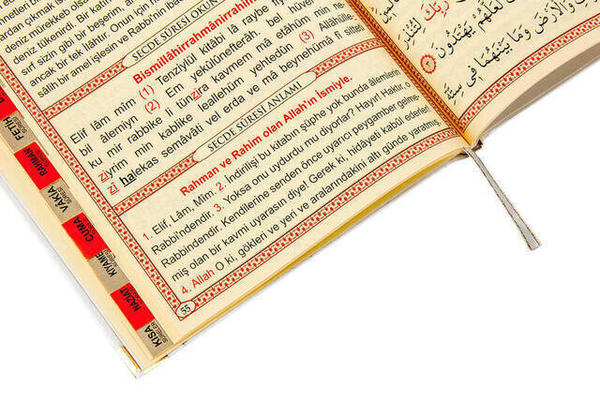 deniz mürekkep olsa
deniz tükenirdi. Bir katını
sırf sizin gibi bir beşerim, ancak
ancak bir tek ilâhtır. Onun için
sâlih bir amel işlesin ve Rabbinin
SECDE SÛRESİ OKUN
Bismillâhirrahmânirrahîm
Elif lâm mîm (1) Tenzîylül kitâbi lâ raybe fî
bil âlemiyn (2) Em yekûlûnefterâh, bel hüvel
ku mir rabbike li tünzira kavmem mâ etâhüm min
ziyrim min kablike leallehüm yehtedûn (3) Allâhülle-
zî halekas semâvâti vel erda ve mâ beynehümâ fî sitteti
SECDE SÛRESİ ANLAMI
Rahman ve Rahim olan Allah'ın İsmiyle.
1. Elif, Lâm, Mim. 2. İndirilişi bu kitabın şüphe yok bunda âlemlerin
Rabbi'ndendir. 3. Yoksa onu uydurdu mu diyorlar? Hayır! Haktır, o
Rabbindendir. Kendilerine senden önce uyarıcı peygamber gelme-
miş olan bir kavmi uyarasın diye! Gerek ki, hidâyeti kabûl ederler.
4. Allah O ki, gökleri ve yeri ve aralarındakini altı günde yaratmış,
55
لَعَلَّهُمْ يَهْتَدُونَ
وَالْأَرْضَ وَمَا بَيْنَهُمَا فِي سِتَّةِ
FETİH
RAHMAN
VAKIA
CUMA
KIYAME
HAZİAT
KISA